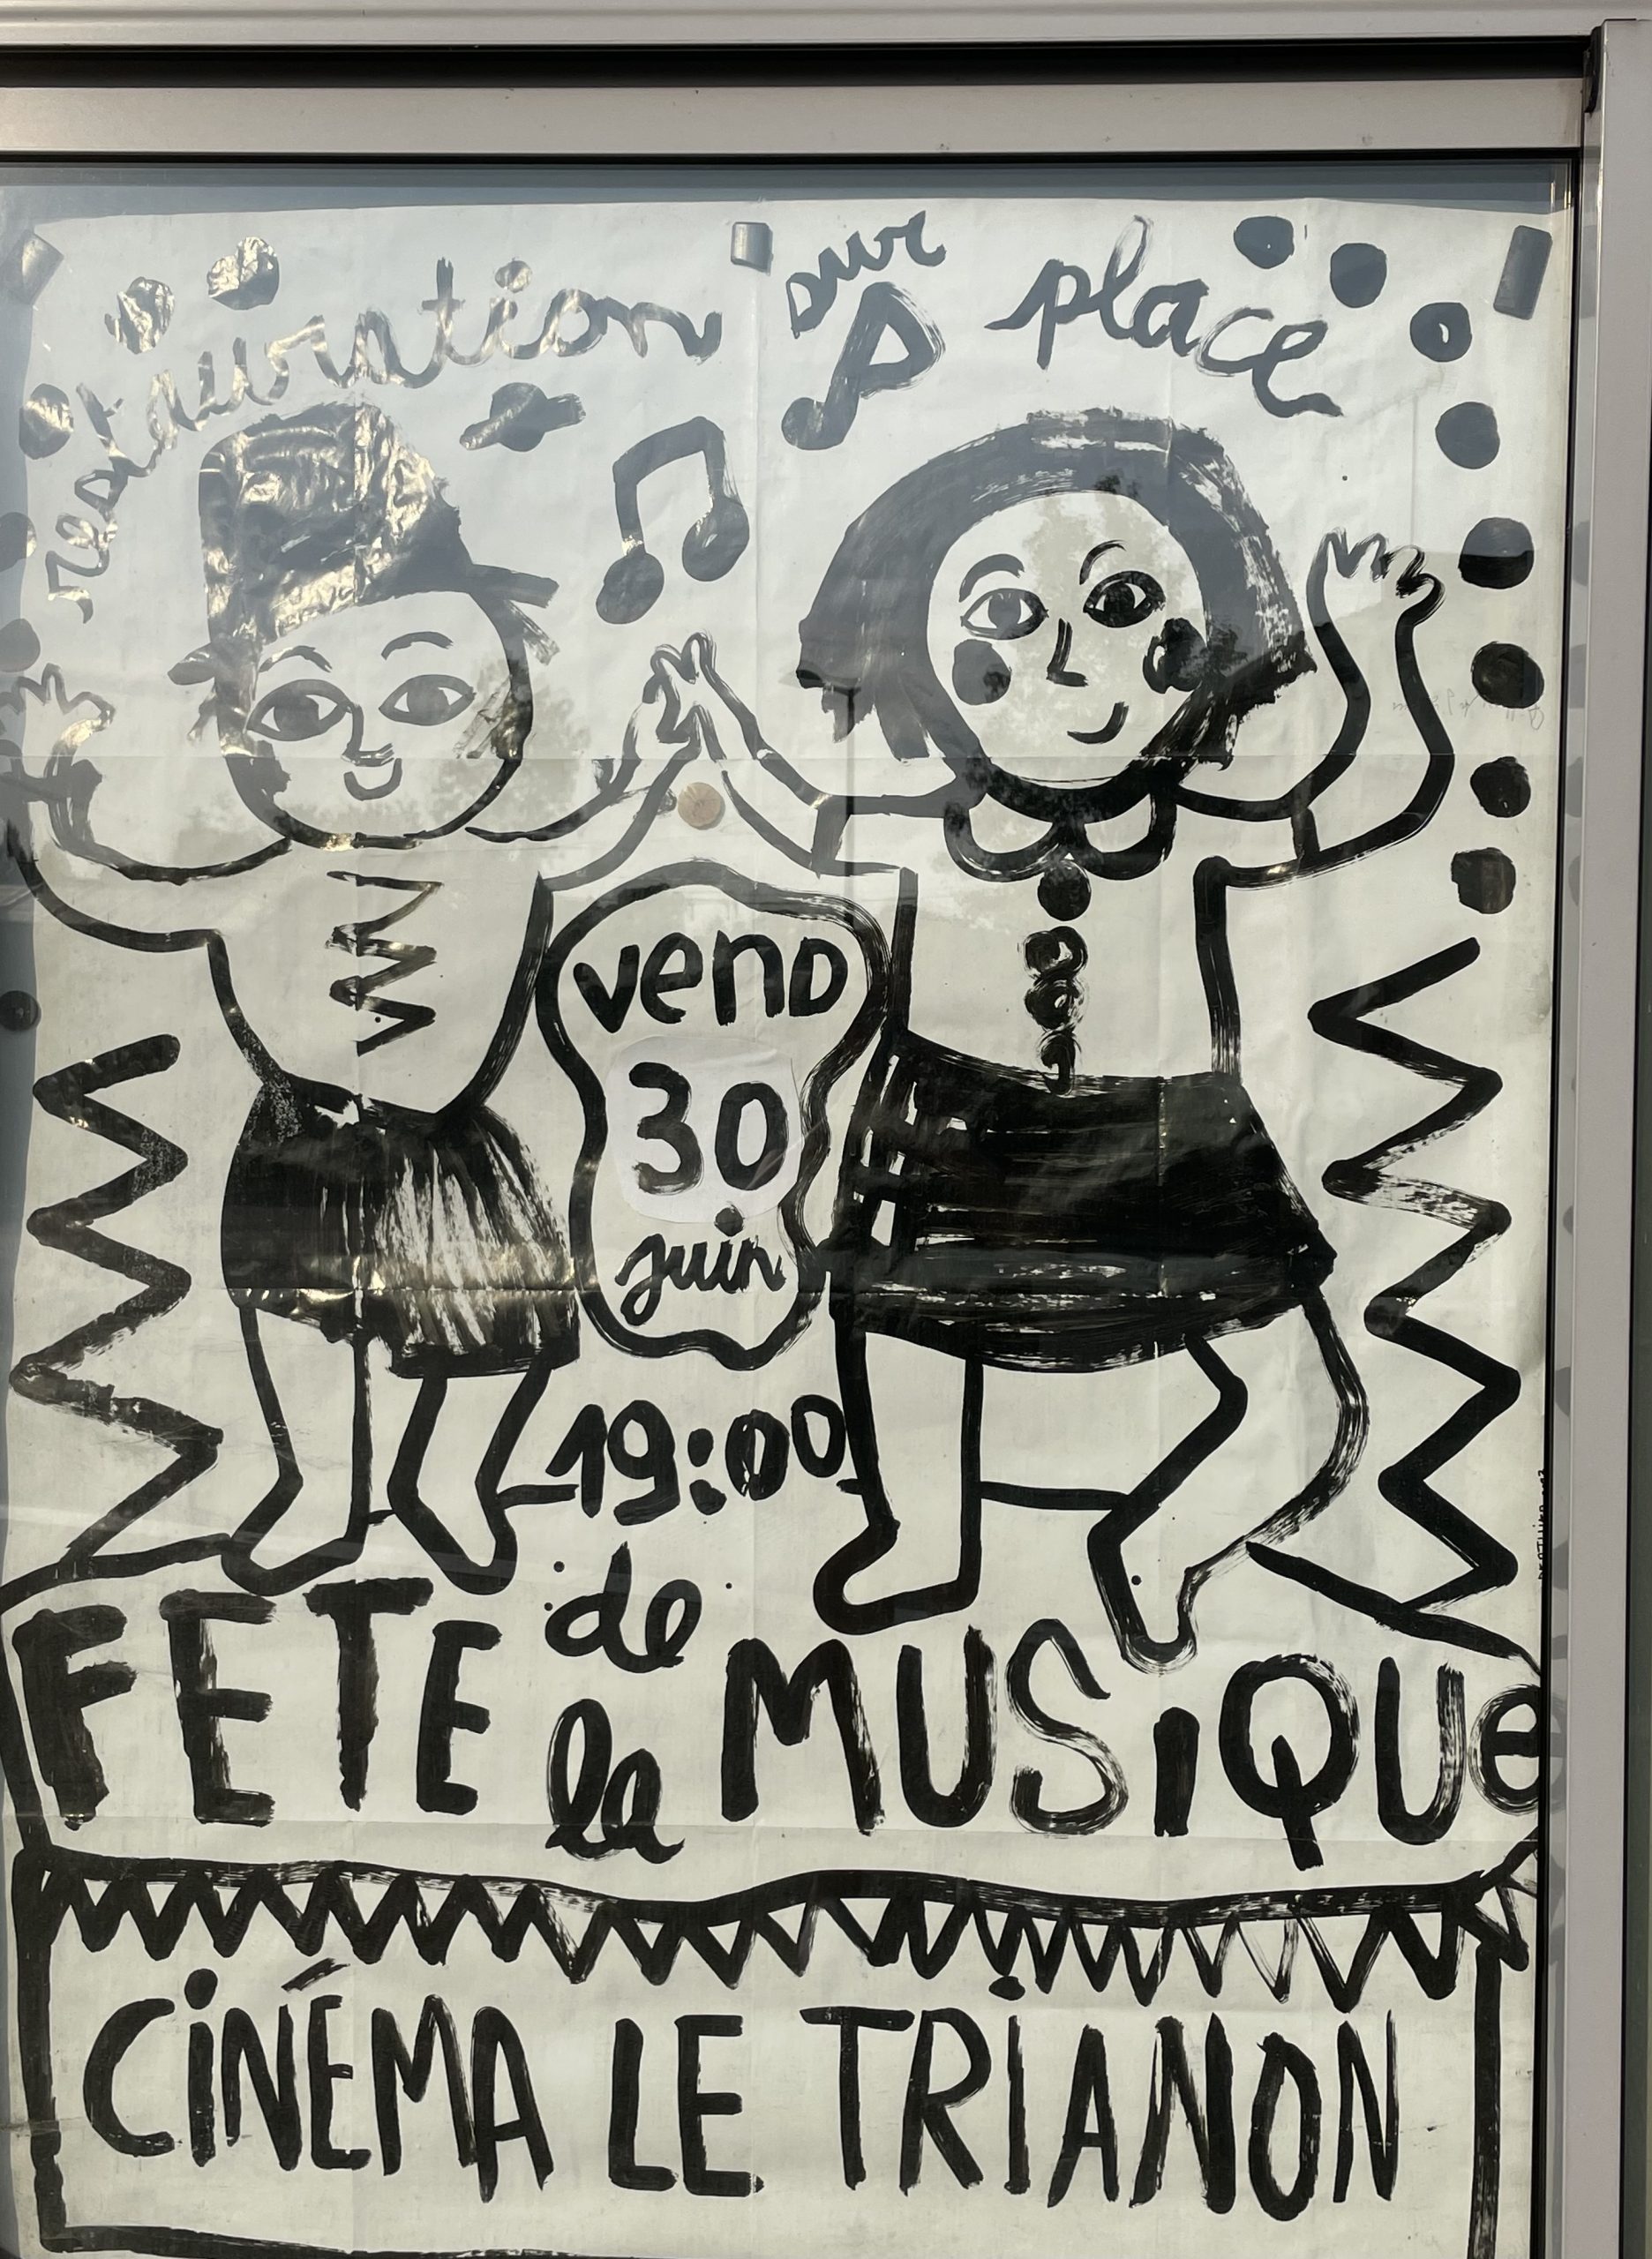 restauration sur place
vend
30
juin
19:00
FETE de la MUSiQUe
CiNÉMA LE TRiANON